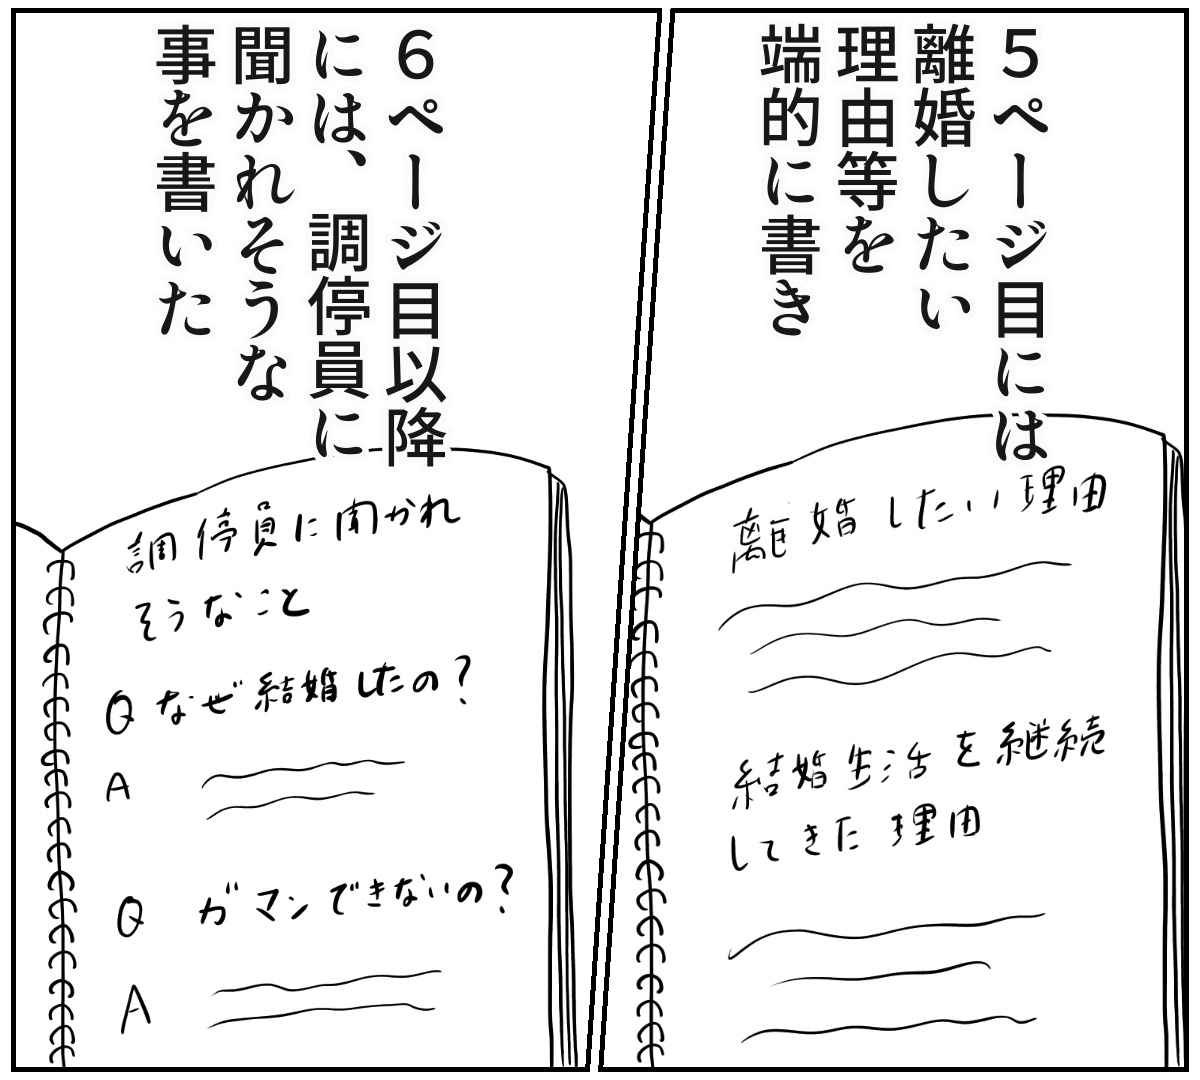 ５ページ目には
離婚したい
理由等を
端的に書き
離婚したい理由
結婚生活を継続
してきた理由
６ページ目以降
には、調停員に
聞かれそうな
事を書いた
調停員に聞かれ
そうなこと
Q なぜ結婚したの？
A
Q ガマンできないの？
A